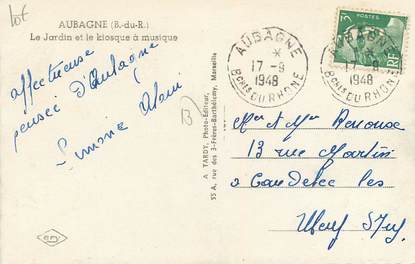 lot
AUBAGNE (B.-du-R.)
Le Jardin et le kiosque à musique
affectueuse
pensée d'Aubagne
Simone Alain
B
A. TARDY, Photo-Editeur,
55 A, rue des 3-Frères-Barthélemy, Marseille
AUBAGNE
17-9
1948
Bches DU RHONE
AUBAGNE
17-9
1948
Bches DU RHONE
3F POSTES
Mr et Mme
13 rue
à Caudebec les
Elbeuf